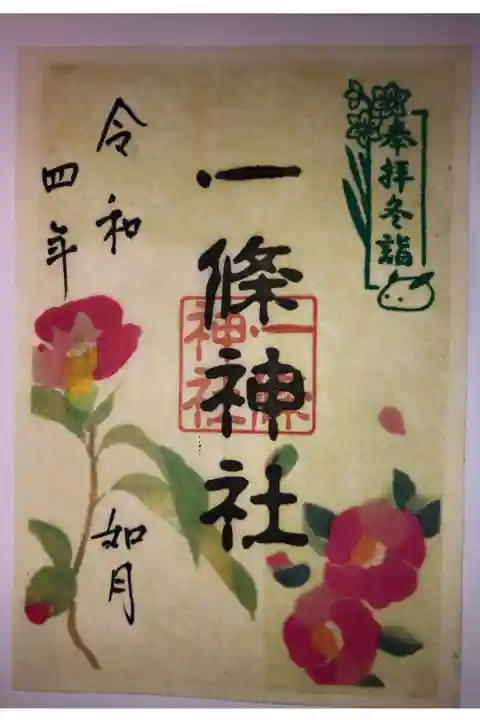 奉拝冬詣
一條神社
一條神社
令和
四年
如月